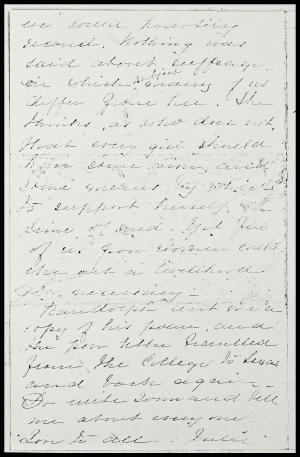 we could heartily
second. Nothing was
said about suffrage
on which subject many of us
differ from her. She
thinks, as who does not,
that every girl should
have some aim, and
some means by which
to support herself, in
time of need. Yet few
of us poor women could
eke out a livelihood
if necessary –
Randolph sent me a
copy of his poem, and
the poor letter travelled
from the College to Texas
and back again –
Do write soon and tell
me about everyone
Love to all – Julie